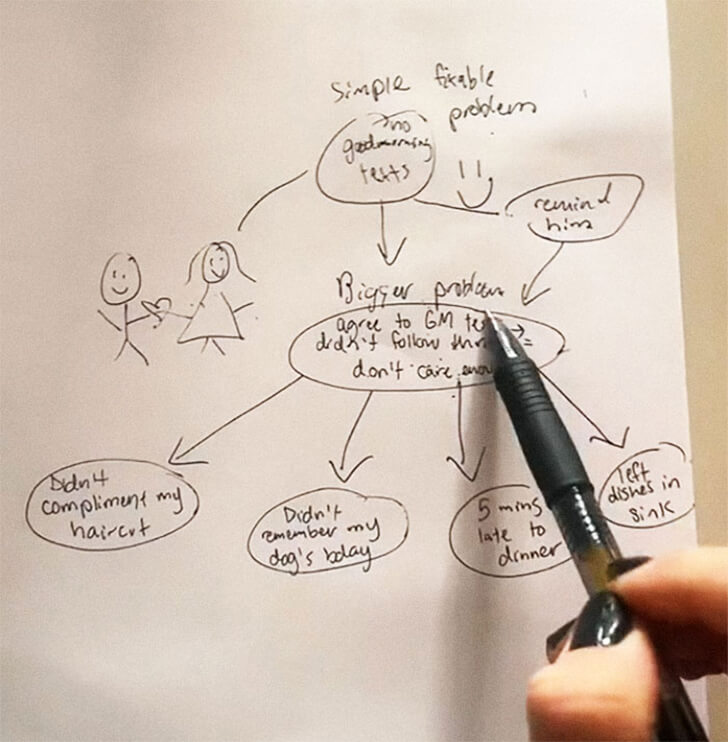 simple fixable
problem
no
goodmorning
texts
remind
him
Bigger problem
agree to GM
didn't follow
don't care
Didn't
compliment my
haircut
Didn't
remember my
dog's bday
5 mins
late to
dinner
left
dishes in
sink